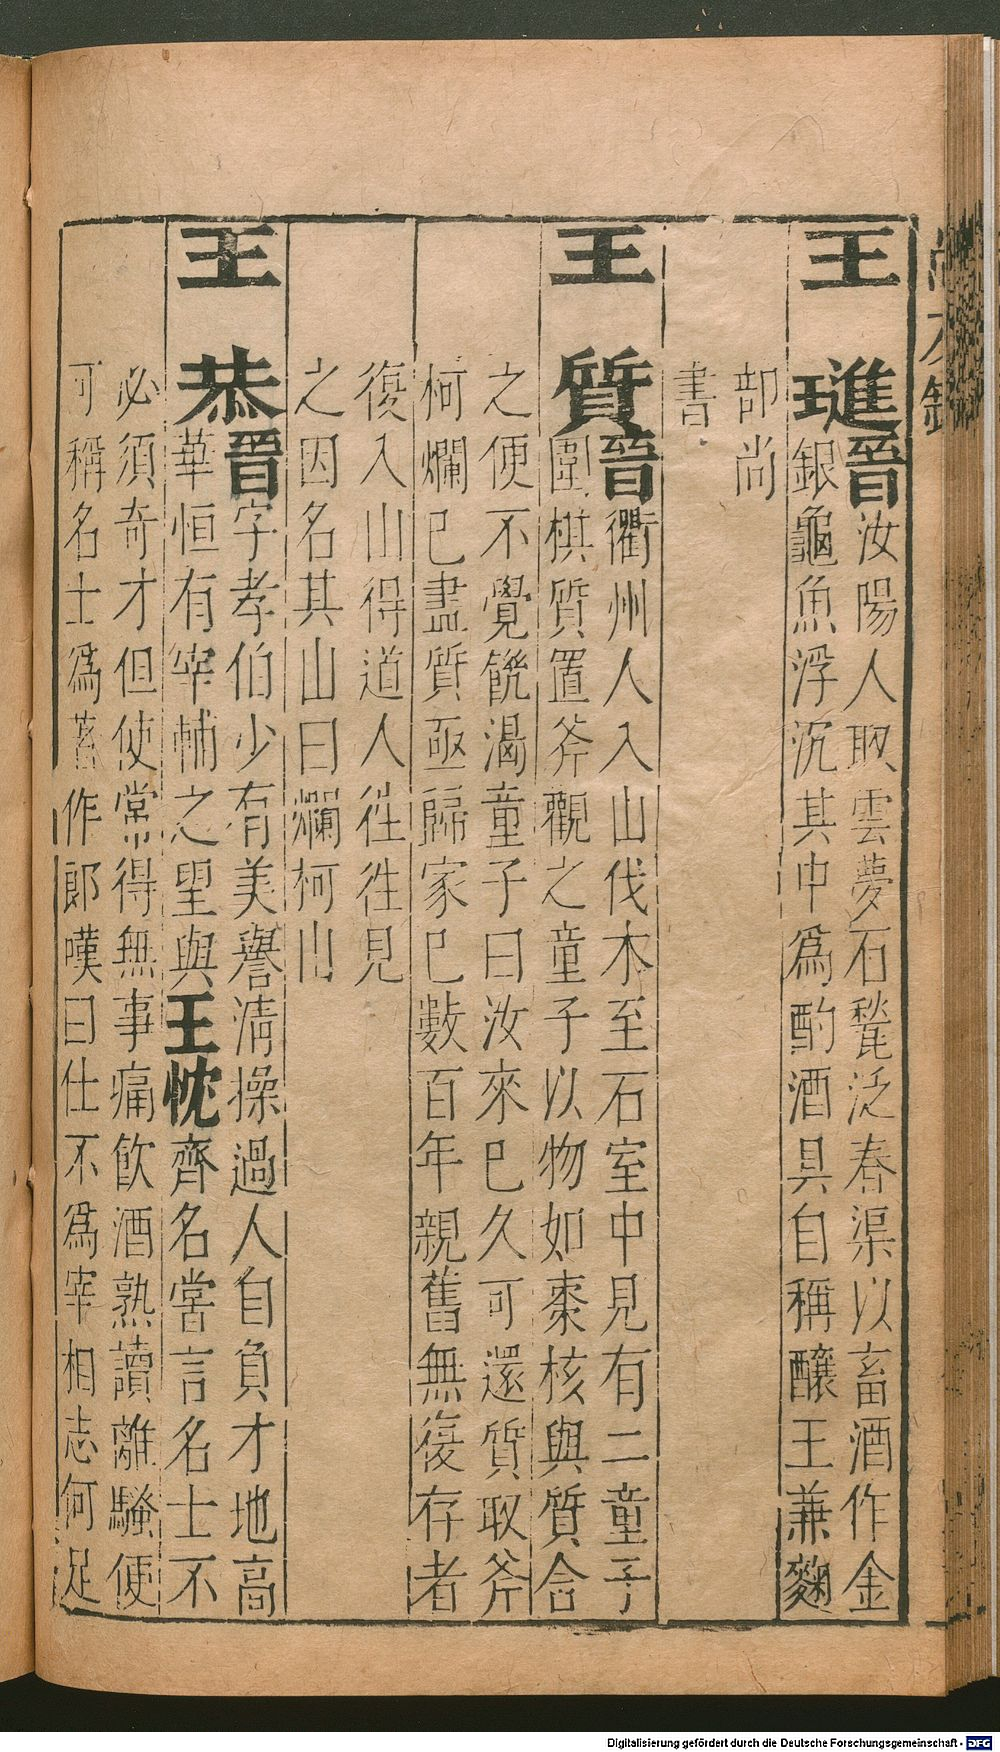 王璡晉汝陽人取雲夢石甃泛春渠以畜酒作金
銀龜魚浮沉其中爲酌酒具自稱釀王兼麴
部尚
書
王質晉衢州人入山伐木至石室中見有二童子
圍棋質置斧觀之童子以物如棗核與質含
之便不覺饑渴童子曰汝來已久可還質取斧
柯爛已盡質亟歸家已數百年親舊無復存者
復入山得道人往往見
之因名其山曰爛柯山
王恭晉字孝伯少有美譽清操過人自負才地高
華恒有宰輔之望與王忱齊名嘗言名士不
必須奇才但使常得無事痛飲酒熟讀離騷便
可稱名士爲著作郎嘆曰仕不爲宰相志何足
Digitalisierung gefördert durch die Deutsche Forschungsgemeinschaft - DFG